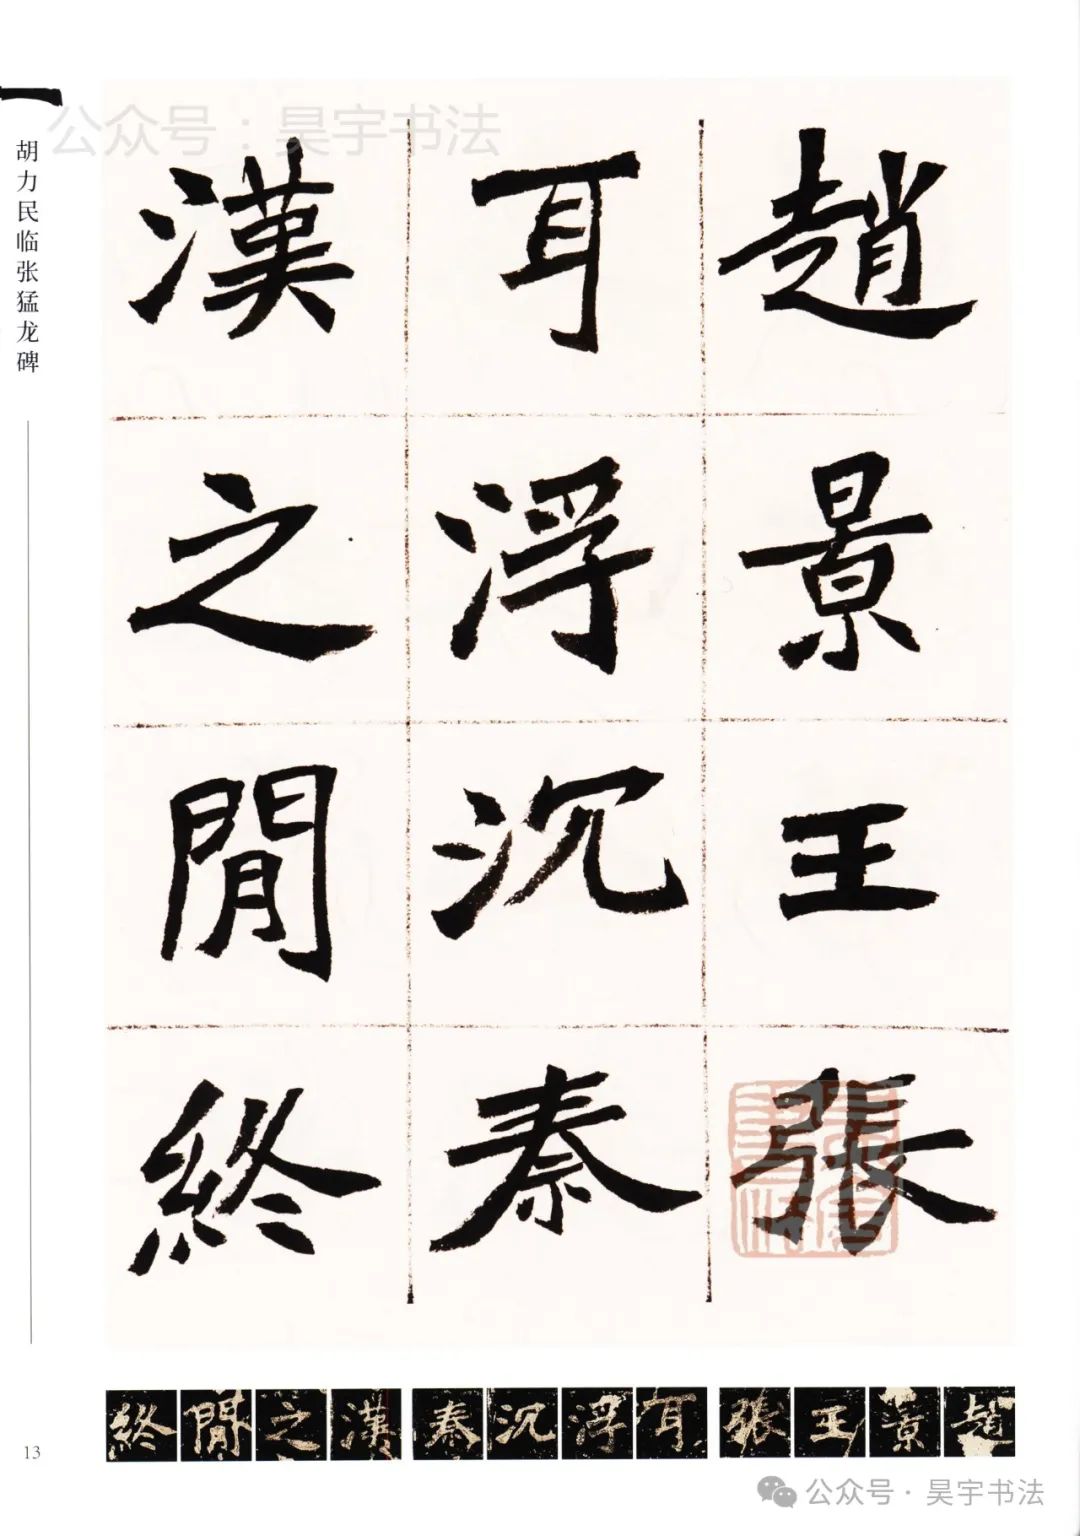 公众号：昊宇书法
胡力民临张猛龙碑
趙景王張
耳浮沉秦
漢之閒終
終閒之漢秦沉浮耳張王景趙
13
公众号·昊宇书法